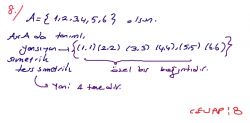 8./ A = {1,2,3,4,5,6} olsun.
AxA da tanımlı,
yansıyan → {(1,1)(2,2) (3,3) (4,4),(5,5) (6,6)}
simetrik
ters simetrik özel bir bağıntıdır.
Yani 1 tanedir.
CEVAP: B